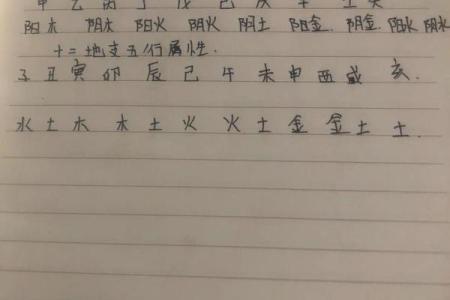 丙 丁 戊 己
阳木 阴木 阳火 阴火 阴土 阳金. 阴金. 阳水 阴水
十二地支五行属性.
子 丑 寅 卯 辰 巳 午 未 申 酉 戌 亥.
水 土 木 木 土 火 火 土 金 金 土 土.